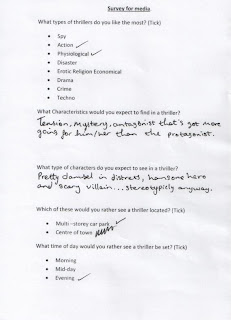 Survey for media
What types of thrillers do you like the most? (Tick)
• Spy
• Action ✓
• Physiological ✓
• Disaster
• Erotic Religion Economical
• Drama
• Crime
• Techno
What Characteristics would you expect to find in a thriller?
Tension, mystery, antagonist that's got more
going for him/her than the protagonist.
What type of characters do you expect to see in a thriller?
Pretty damsel in distress, hansome hero
and scary villain... stereotypicly anyway.
Which of these would you rather see a thriller located? (Tick)
• Multi –storey car park ✓
• Centre of town
What time of day would you rather see a thriller be set? (Tick)
• Morning
• Mid-day
• Evening ✓